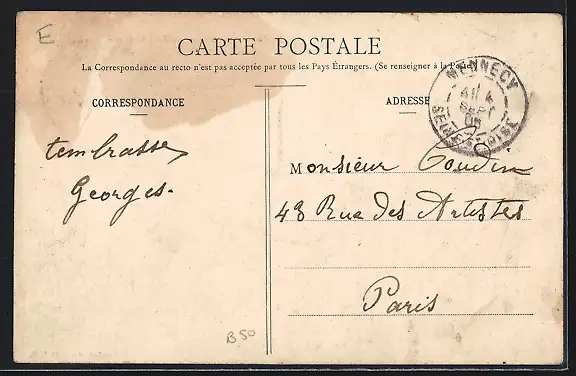 E
CARTE POSTALE
La Correspondance au recto n'est pas acceptée par tous les Pays Étrangers. (Se renseigner à la Poste)
CORRESPONDANCE
ADRESSE
MENNECY
4
SEPT
08
SEINE-ET-OISE
t'embrasse
Georges.
Monsieur Coudin
43 Rue des Artistes
Paris
B50